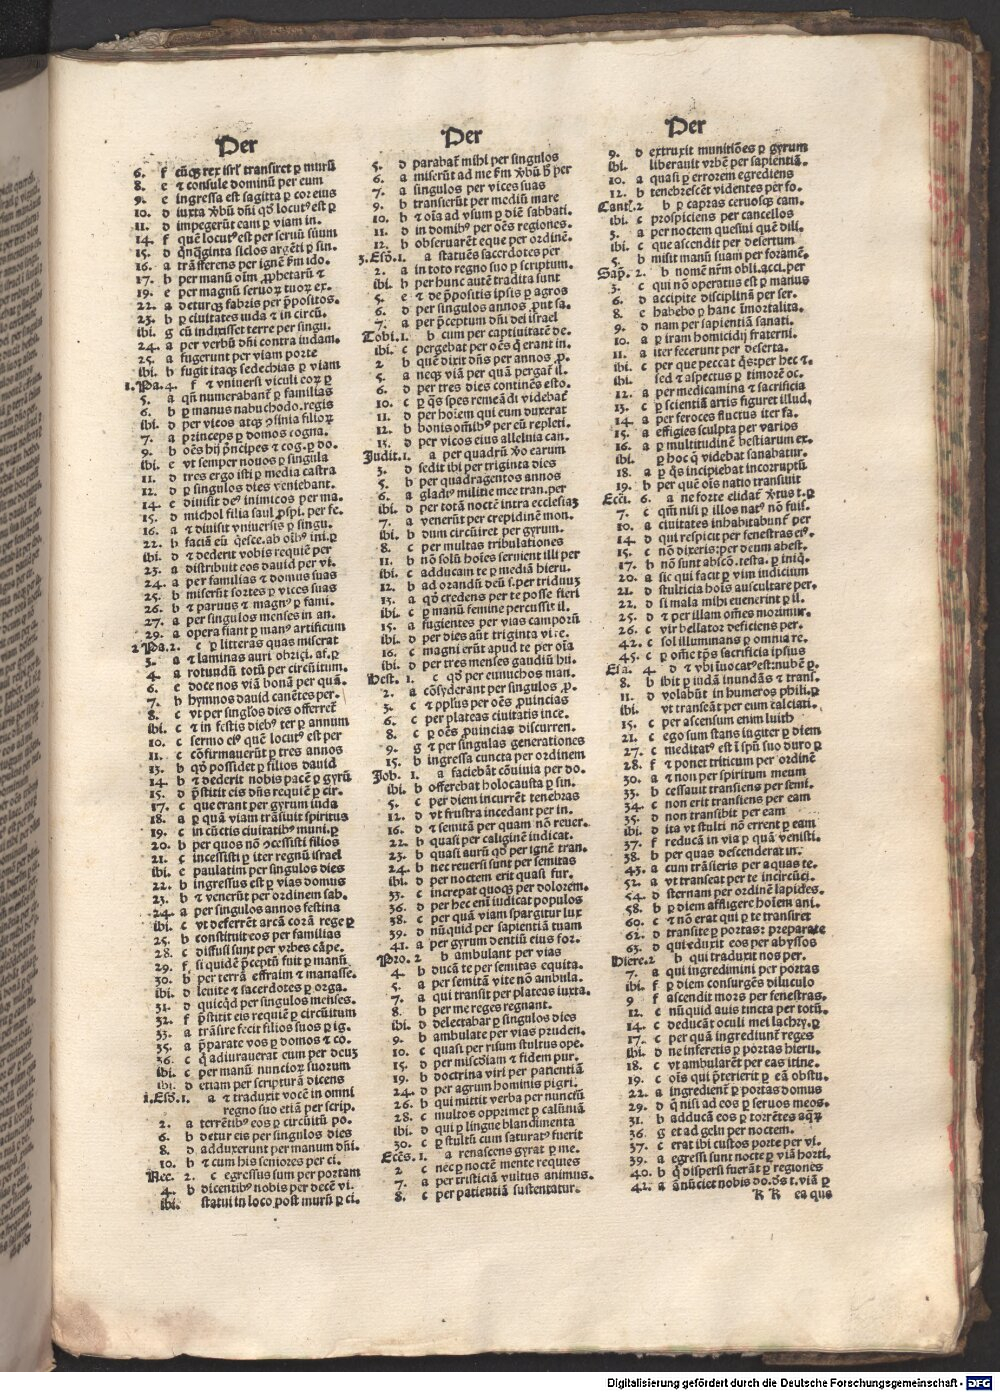 Per
6. f cūqꝫ rex isrl' transiret ꝑ murū
8. e ⁊ consule dominū per eum
9. e ingressa est sagitta ꝑ cor eius
10. d iuxta ꝟbū dn̄i qd' locutꝰ est ꝑ
11. d impegerūt eam ꝑ viam in.
14. f quē locutꝰ est per seruū suum
15. d qn̄qginta siclos argēti ꝑ sin.
16. a trāsferens per ignē ẜm ido.
17. b per manū oīm ꝓphetarū ⁊
19. e per magnū seruoꝝ tuoꝝ ex.
22. a deturqꝫ fabris per p̄positos.
23. b ꝑ ciuitates iuda ⁊ in circū.
ibi. g cū induxisset terre per singu.
24. a per verbū dn̄i contra iudam.
25. a fugerunt per viam porte
ibi. b fugit itaqꝫ sedechias ꝑ viam
1. Pa. 4. f ⁊ vniuersi viculi eoꝝ ꝑ
5. a qn̄ numerabant ꝑ familias
6. b ꝑ manus nabuchodo. regis
ibi. d per vicos atqꝫ ꝯfinia filioꝝ
7. a princeps ꝑ domos cogna.
9. b oēs hij p̄ncipes ⁊ cog. ꝑ do.
ibi. e vt semper nouos ꝑ singula
11. d tres ergo isti ꝑ media castra
12. d ꝑ singulos dies veniebant.
14. c diuisit deꝰ inimicos per ma.
15. d michol filia saul ꝓspi. per fe.
16. a ⁊ diuisit vniuersis ꝑ singu.
22. b faciā eū q̄esce. ab oībꝰ ini. ꝑ
ibi. d ⁊ dederit vobis requiē per
23. a distribuit eos dauid per vi.
24. a per familias ⁊ domus suas
25. b miserūt sortes ꝑ vices suas
26. b ⁊ paruus ⁊ magnꝰ ꝑ fami.
27. a per singulos menses in an.
29. a opera fiant ꝑ manꝰ artificum
2 Pa. 2. c ꝑ litteras quas miserat
3. a ⁊ laminas auri obriçi. af. ꝑ
4. a rotundū totū per circūitum.
6. e doce nos viā bonā per quā.
7. b hymnos dauid canētes per.
8. c vt per singl'os dies offerret̄
ibi. c ⁊ in festis diebꝰ ter ꝑ annum
10. c sermo eiꝰ quē locutꝰ est per
11. c cōfirmauerūt ꝑ tres annos
13. b qd' possidet ꝑ filios dauid
14. b ⁊ dederit nobis pacē ꝑ gyrū
15. d p̄stitit eis dn̄s requiē ꝑ cir.
17. c que erant per gyrum iuda
18. a ꝑ quā viam trāsiuit spiritus
19. c in cūctis ciuitatibꝰ muni. ꝑ
20. b per quos nō ꝯcessisti filios
21. c incessisti ꝑ iter regnū israel
ibi. c paulatim per singulos dies
22. b ingressus est ꝑ vias domus
23. b ⁊ venerūt per ordinem sab.
24. a per singulos annos festina
ibi. c vt deferrēt arcā corā rege ꝑ
25. b constituit eos per familias
28. c diffusi sunt per vrbes cāpe.
29. f si quidē p̄ceptū fuit ꝑ manū
30. b per terrā effraim ⁊ manasse.
ibi. d leuite ⁊ sacerdotes ꝑ orga.
31. d quicqd' per singulos menses.
32. f p̄stitit eis requiē ꝑ circūitum
33. a trāsire fecit filios suos ꝑ ig.
35. a p̄parate vos ꝑ domos ⁊ co.
36. c q̄ adiurauerat eum per deuꝫ
ibi. c per manū nuncioꝝ suorum
ibi. d etiam per scripturā dicens
1. Esd'. 1. a ⁊ traduxit vocē in omni
regno suo etiā per scrip.
2. a terrētibꝰ eos ꝑ circūitū po.
6. b detur eis per singulos dies
8. d adduxerunt per manum dn̄i.
10. b ⁊ cum his seniores per ci.
Nee. 2. c egressus sum per portam
4. b dicentibꝰ nobis per decē vi.
ibi. statui in loco post murū ꝑ ci.
Per
5. d parabat̄ mihi per singulos
6. a miserūt ad me ẜm ꝟbū h̄ per
7. a singulos per vices suas
9. b transierūt per mediū mare
10. b ⁊ oīa ad vsum ꝑ diē sabbati.
11. d in domibꝰ per oēs regiones.
12. b obseruarēt eque per ordinē.
3. Esd'. 1. a statuēs sacerdotes per
2. a in toto regno suo ꝑ scriptum.
ibi. b per hunc autē tradita sunt
5. e ⁊ de p̄positis ipsis ꝑ agros
6. d per singulos annos ꝓut sa.
7. a per p̄ceptum dn̄i dei israel
Tobi. 1. b cum per captiuitatē de.
ibi. c pergebat per oēs q̄ erant in.
2 b quē dixit dn̄s per annos ꝓ.
5. a neqꝫ viā per quā pergat̄ il.
6. d per tres dies continēs esto.
10. c ꝑ q̄s spes remeādi videbat̄
11. d per hoīem qui eum duxerat
12. b bonis om̄ibꝰ per eū repleti.
13. d per vicos eius alleluia can.
Judit. 1. a per quadrū ꝟo earum
3. d sedit ibi per triginta dies
5. b per quadragentos annos
6. a gladiꝰ militie mee tran. per
ibi. d per totā noctē intra ecclesiaꝫ
7. a venerūt per crepidinē mon.
ibi. b dum circūiret per gyrum.
8. c per multas tribulationes
11. b nō solū hoīes seruient illi per
ibi. c adducam te ꝑ mediā hieru.
12. b ad orandū deū s. per triduuꝫ
13. a qd' credens per te posse fieri
ibi. c ꝑ manū femine percussit il.
15. a fugientes per vias camporū
ibi. d per dies aūt triginta vi⁊c.
16. c magni erūt apud te per oīa
ibi. d per tres menses gaudiū hu.
Hest. 1. c qd' per eunuchos man.
2. a cōsyderant per singulos ꝓ.
3. c ⁊ pplus per oēs ꝓuincias
6. c per plateas ciuitatis ince.
8. c ꝑ oēs ꝓuincias discurren.
9. g ⁊ per singulas generationes
15. b ingressa cuncta per ordinem
Job. 1. a faciebāt cōuiuia per do.
ibi. b offerebat holocausta ꝑ sin.
5. c per diem incurrēt tenebras
12. d vt frustra incedant per in.
16. d ⁊ semitā per quam nō reuer.
22. b quasi per caliginē iudicat.
23. b quasi aurū qd' per ignē tran.
24. b nec reuersi sunt per semitas
ibi. d per noctem erit quasi fur.
33. c increpat quoqꝫ per dolorem.
36. d per hec em̄ iudicat populos
38. c per quā viam spargitur lux
39. d nūquid per sapientiā tuam
41. a per gyrum dentiū eius for.
Pro. 2 b ambulant per vias
4. b ducā te per semitas equita.
5. a per semitā vite nō ambula.
7. a qui transit per plateas iuxta.
8. b per me reges regnant.
ibi. d delectabar ꝑ singulos dies
9. b ambulate per vias pruden.
10. c quasi per risum stultus ope.
15. d per misc'diam ⁊ fidem pur.
19. b doctrina viri per patientiā
24. d per agrum hominis pigri.
26. b qui mittit verba per nunciū
28. c multos opprimet ꝑ calūniā
ibi. d qui ꝑ lingue blandimenta
30. c ꝑ stultū cum saturatꝰ fuerit
Eccs. 1. a renascens gyrat ꝑ me.
2 c nec ꝑ noctē mente requies
7. a per tristiciā vultus animus.
8. c per patientiā sustentatur.
Per
9. d extruxit munitiōes ꝑ gyrum
ibi. liberauit vrbē per sapientiā.
10. a quasi ꝑ errorem egrediens
12. b tenebrescēt videntes per fo.
Cant'. 2 b ꝑ capras ceruosqꝫ cam.
ibi. c prospiciens per cancellos
3. a per noctem quesiui quē dili.
ibi. c que ascendit per desertum
5. b misit manū suam per foramē.
Sap. 2. b nomē nr̄m obli. acci. per
3. c qui nō operatus est ꝑ manus
6. d accipite disciplinā per ser.
8. e habebo ꝑ hanc īmortalita.
9. d nam per sapientiā sanati.
10. a ꝑ iram homicidij fraterni.
11. a iter fecerunt per deserta.
ibi. c per que peccat q̄s: per hec ⁊.
ibi. sed ⁊ aspectus ꝑ timorē oc.
12. a per medicamina ⁊ sacrificia
13. c ꝑ scientiā artis figuret illud.
14. a per feroces fluctus iter fa.
15. a effigies sculpta per varios
16. a ꝑ multitudinē bestiarum ex.
ibi. ꝑ hoc q̄ videbat sanabatur.
18. a ꝑ q̄s incipiebat incorruptū
19. b per quē oīs natio transiuit
Ecci. 6. a ne forte elidat̄ ꝟtus t. ꝑ
7. c qm̄ nisi ꝑ illos natꝰ nō fuis.
10. a ciuitates inhabitabunt̄ per.
14. d qui respicit per fenestras eiꝰ.
15. c nō dixeris: per deum abest.
17. b nō sunt abscō. testa. ꝑ iniq̄.
20. a sic qui facit ꝑ vim iudicium
21. d stulticia hoīs auscultare per.
22. d si mala mihi euenerint ꝑ il.
25. d ⁊ per illam om̄es morimur.
26. c vir bellator deficiens per.
42. c sol illuminans ꝑ omnia re.
45. c ꝑ om̄e tp̄s sacrificia ipsius
Esa. 4. d ⁊ vbi īuocatꝰ est: nubē ꝑ.
8. b ibit ꝑ iudā inundās ⁊ trans.
11. d volabūt in humeros phili. ꝑ
ibi. vt transeāt per eum calciati.
15. c per ascensum enim luith
21. c ego sum stans iugiter ꝑ diem
27. c meditatꝰ est ī sp̄u suo duro ꝑ
28. f ⁊ ponet triticum per ordinē
30. a ⁊ non per spiritum meum
33. b cessauit transiens per semi.
34. c non erit transiens per eam
35. d non transibit per eam
ibi. d ita vt stulti nō errent ꝑ eam
37. f reducā in via ꝑ quā venisti.
38. b per quas descenderat in.
43. a cum trāsieris per aquas te.
52. a vt transeat per te incircūci.
54. d sternam per ordinē lapides.
58. b ꝑ diem affligere hoīem ani.
60. c ⁊ nō erat qui ꝑ te transiret
62. d transite ꝑ portas: preparate
63. d qui eduxit eos per abyssos
Hiere. 2 b qui traduxit nos per.
7. a qui ingredimini per portas
ibi. f ꝑ diem consurgēs diluculo
9 f ascendit mors per fenestras.
12. c nūquid auis tincta per totū.
14. c deducāt oculi mei lachry. ꝑ
17. c per quā ingrediunt̄ reges
ibi. d ne inferetis ꝑ portas hieru.
18. c vt ambularēt per eas itine.
19. c oīs qui p̄terierit ꝑ eā obstu.
22. a ingredient̄ ꝑ portas domus
29. d q̄ nisi ad eos ꝑ seruos meos.
31. b adducā eos ꝑ torrētes aq̄ꝝ
36. g et ad gelu per noctem.
37. c erat ibi custos porte per vi.
39. a egressi sunt nocte ꝑ viā horti.
40. b q̄ dispersi fuerāt ꝑ regiones
42. a ānūciet nobis do. ds̄ t. viā ꝑ
K K ea que
Digitalisierung gefördert durch die Deutsche Forschungsgemeinschaft - DFG